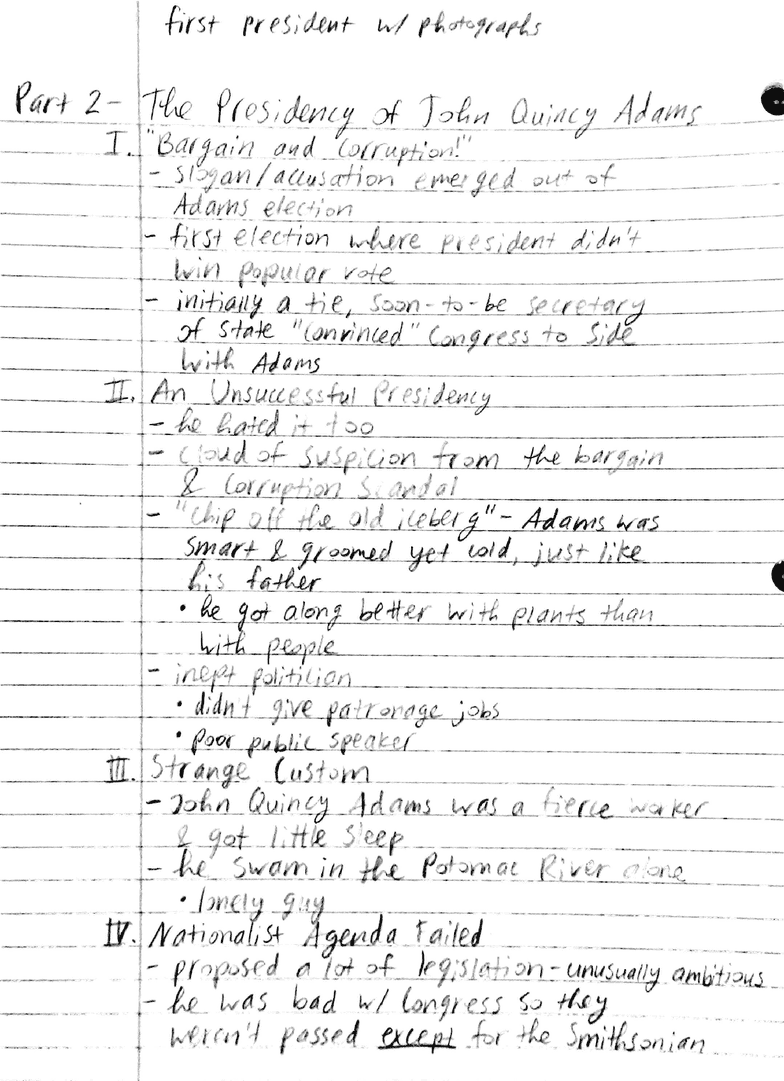 first president w/ photographs
Part 2- The Presidency of John Quincy Adams
I. "Bargain and Corruption!"
- slogan/accusation emerged out of
Adams election
- first election where president didn't
win popular vote
- initially a tie, soon-to-be secretary
of State "convinced" Congress to side
with Adams
II. An Unsuccessful Presidency
- he hated it too
- cloud of suspicion from the bargain
& Corruption Scandal
- "chip off the old iceberg" - Adams was
smart & groomed yet cold, just like
his father
• he got along better with plants than
with people
- inept politician
• didn't give patronage jobs
• poor public speaker
III. Strange Custom
- John Quincy Adams was a fierce worker
& got little sleep
- he swam in the Potomac River alone
• lonely guy
IV. Nationalist Agenda Failed
- proposed a lot of legislation - unusually ambitious
- he was bad w/ Congress so they
weren't passed except for the Smithsonian